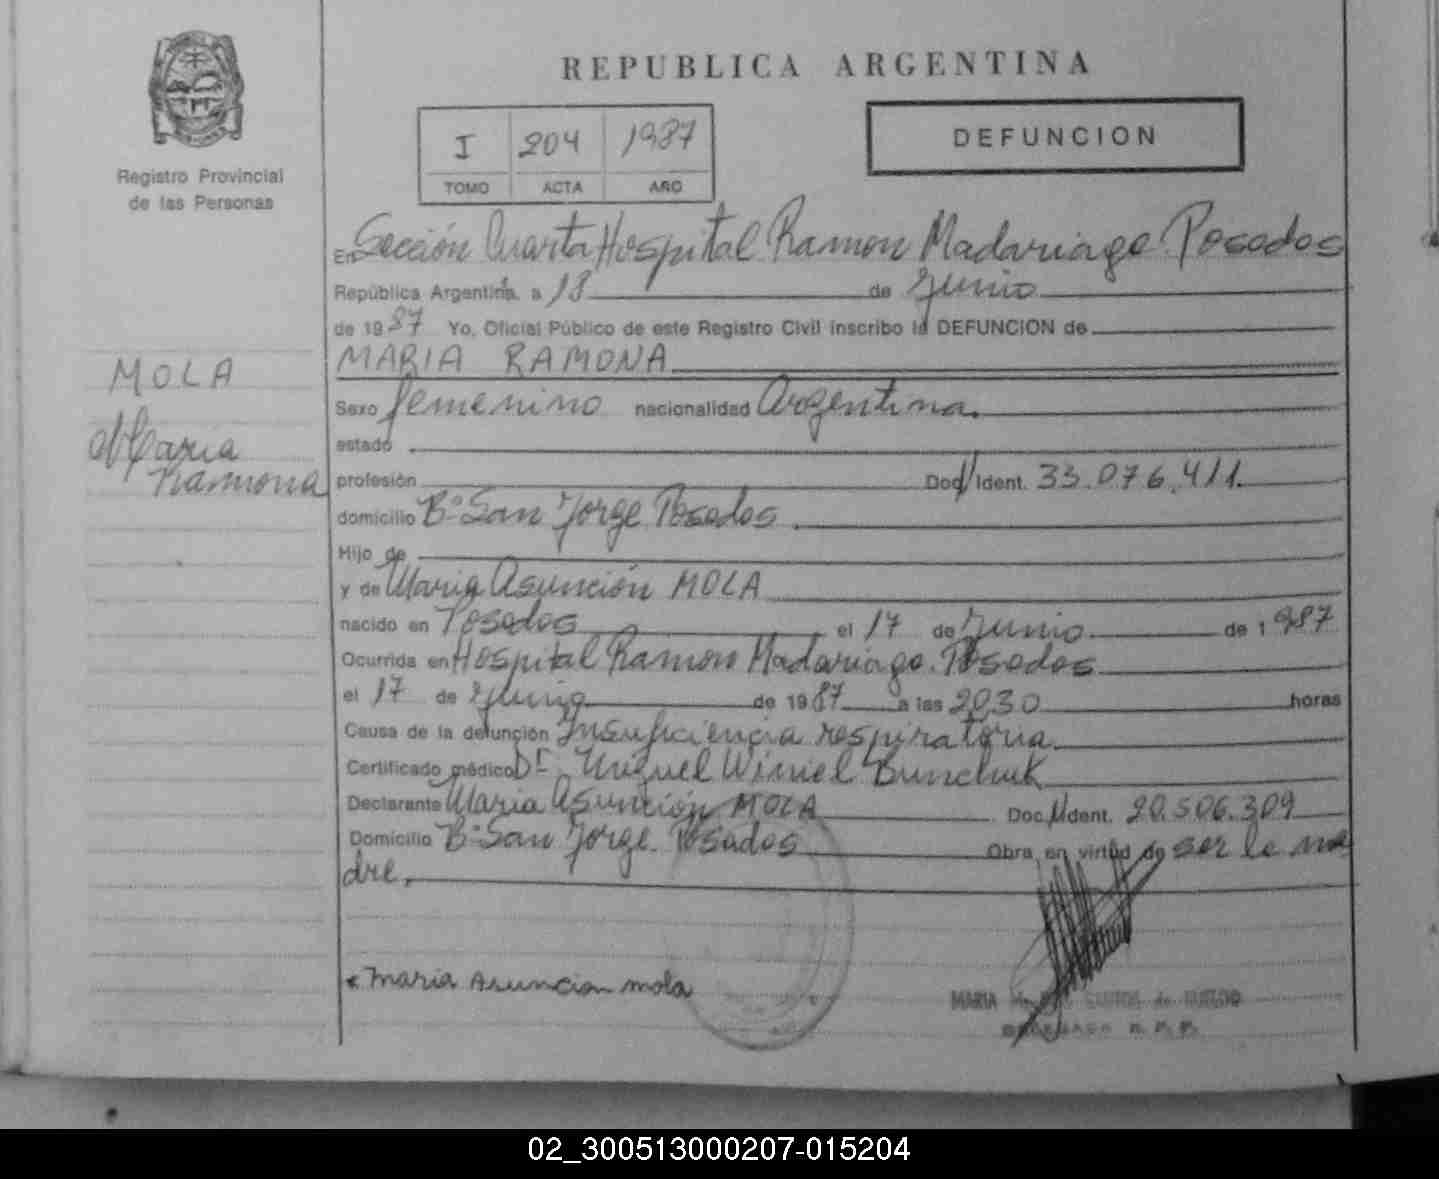 REPUBLICA ARGENTINA
Registro Provincial
de las Personas
I 204 1987
TOMO ACTA AÑO
DEFUNCION
En Sección Cuarta Hospital Ramon Madariaga Posadas
República Argentina, a 18 de Junio
de 1987 Yo, Oficial Público de este Registro Civil inscribo la DEFUNCION de
MARIA RAMONA
MOLA
Maria
Ramona
Sexo femenino nacionalidad Argentina.
estado
profesión Doc/Ident. 33.076.411.
domicilio Bº San Jorge Posadas.
Hijo de
y de Maria Asunción MOLA
nacido en Posadas el 17 de Junio de 1987
Ocurrida en Hospital Ramon Madariaga. Posadas
el 17 de Junio de 1987 a las 20,30 horas
Causa de la defunción Insuficiencia respiratoria.
Certificado médico Dr. Miguel Winiel Bunchuk
Declarante Maria Asunción MOLA Doc. Ident. 20.506.309
Domicilio Bº San Jorge. Posadas Obra en virtud de ser la ma
dre.
Maria Asuncion mola
MARIA
02_300513000207-015204